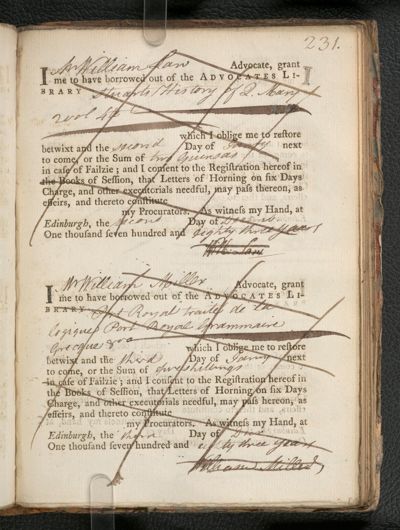 231.
I Mr William Law Advocate, grant
me to have borrowed out of the ADVOCATES LI-
BRARY Stuarts History of Q. Mary
2 vol 4to
which I oblige me to restore
betwixt and the second Day of Janry next
to come, or the Sum of two Guineas
in case of Failzie; and I consent to the Registration hereof in
the Books of Session, that Letters of Horning on six Days
Charge, and other executorials needful, may pass thereon, as
effeirs, and thereto constitute
my Procurators. As witness my Hand, at
Edinburgh, the second Day of
One thousand seven hundred and eighty three years
Will: Law
I Mr William Miller Advocate, grant
me to have borrowed out of the ADVOCATES LI-
BRARY Port Royal traité de la
logique Port Royal Grammaire
Grecque
which I oblige me to restore
betwixt and the third Day of Janry next
to come, or the Sum of five shillings
in case of Failzie; and I consent to the Registration hereof in
the Books of Session, that Letters of Horning on six Days
Charge, and other executorials needful, may pass hereon, as
effeirs, and thereto constitute
my Procurators. As witness my Hand, at
Edinburgh, the third Day of
One thousand seven hundred and eighty three years
William Miller